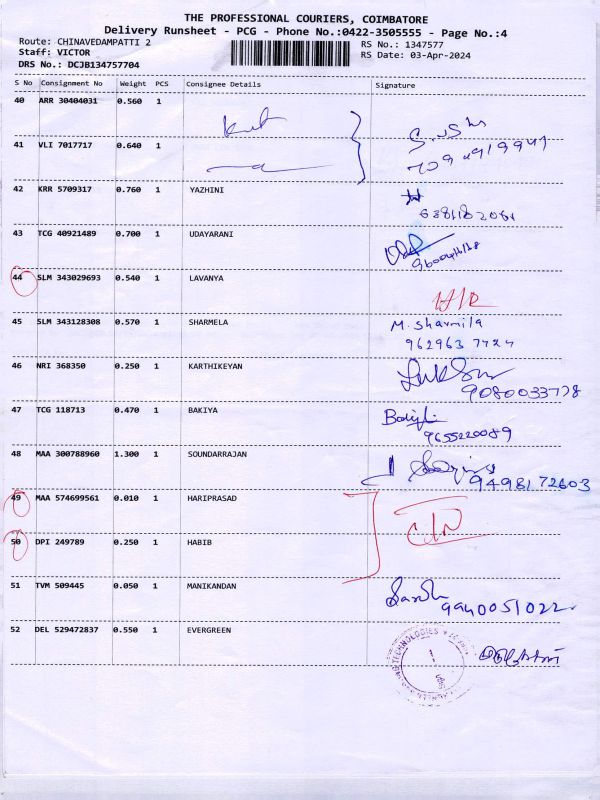 THE PROFESSIONAL COURIERS, COIMBATORE
Delivery Runsheet - PCG - Phone No.:0422-3505555 - Page No.:4
Route: CHINAVEDAMPATTI 2
RS No.: 1347577
Staff: VICTOR
RS Date: 03-Apr-2024
DRS No.: DCJB134757704
S No Consignment No Weight PCS Consignee Details Signature
40 ARR 30404031 0.560 1
41 VLI 7017717 0.640 1
42 KRR 5709317 0.760 1 YAZHINI
43 TCG 40921489 0.700 1 UDAYARANI
44 SLM 343029693 0.540 1 LAVANYA
45 SLM 343128308 0.570 1 SHARMELA M. Sharmila
962963 7724
46 NRI 368350 0.250 1 KARTHIKEYAN
9080033778
47 TCG 118713 0.470 1 BAKIYA
9655220089
48 MAA 300788960 1.300 1 SOUNDARRAJAN
9498172603
49 MAA 574699561 0.010 1 HARIPRASAD
50 DPI 249789 0.250 1 HABIB
51 TVM 509445 0.050 1 MANIKANDAN
9940051022
52 DEL 529472837 0.550 1 EVERGREEN
TECHNOLOGIES